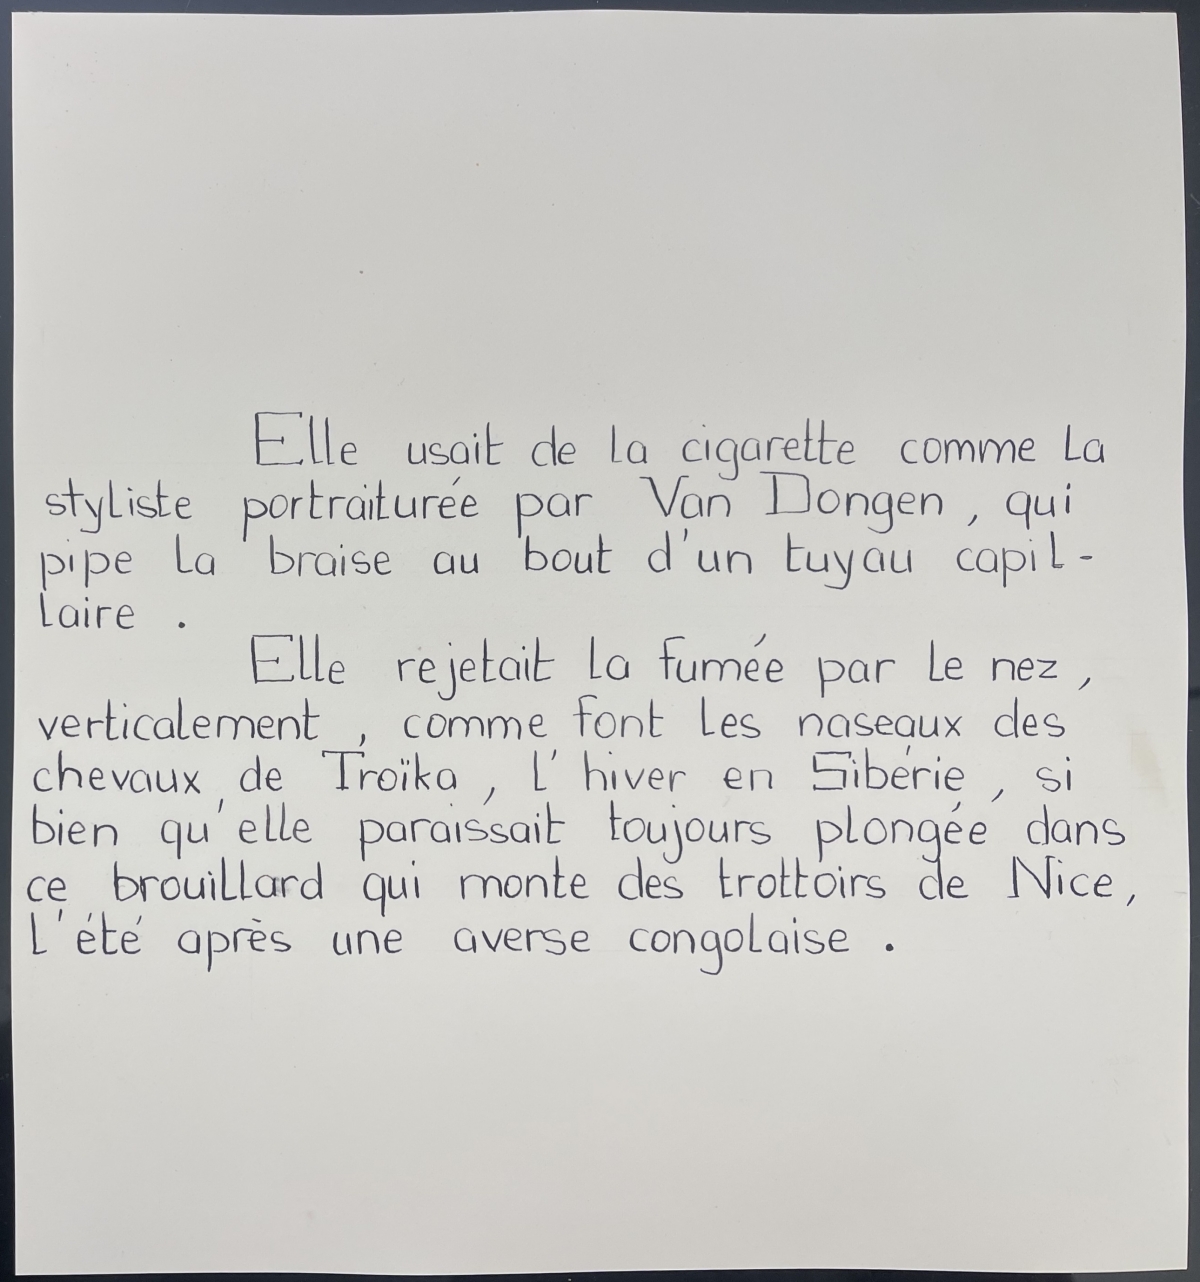 Elle usait de la cigarette comme la
styliste portraiturée par Van Dongen, qui
pipe la braise au bout d'un tuyau capil-
laire.
Elle rejetait la fumée par le nez,
verticalement, comme font les naseaux des
chevaux de Troïka, l'hiver en Sibérie, si
bien qu'elle paraissait toujours plongée dans
ce brouillard qui monte des trottoirs de Nice,
l'été après une averse congolaise.